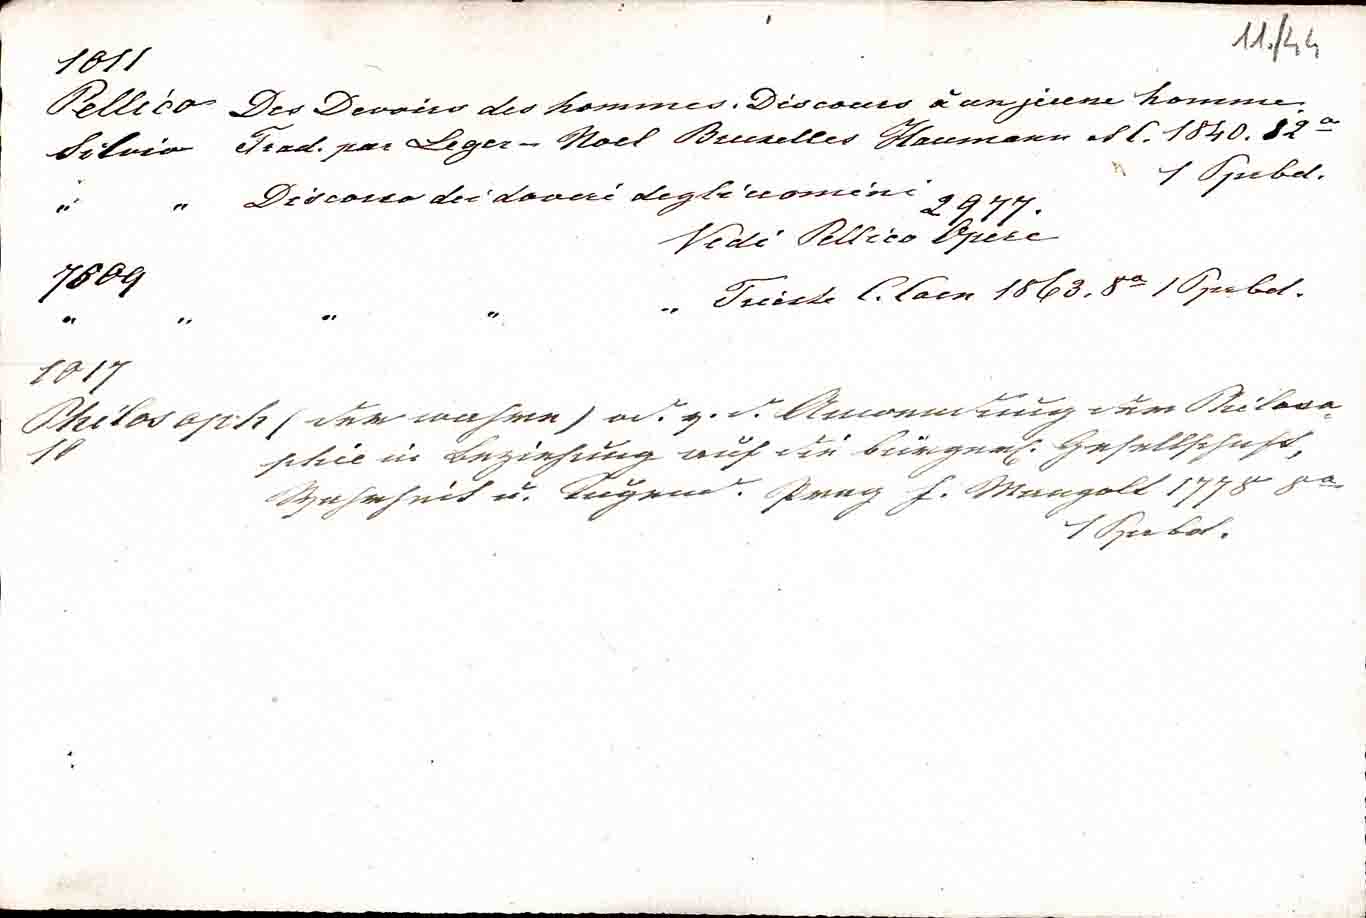 11./44
1011
Pellico Des Devoirs des hommes. Discours à un jeune homme.
Silvio Trad. par Leger-Noel Bruxelles Haumann et C. 1840. 12°
1 Ppbd.
" " Discorso dei doveri degli uomini
2977.
Vedi Pellico Opere
7609
" " " " " Trieste C. Coen 1863. 8° 1 Ppbd.
1017
Philosoph (der wahre) od. z. d. Anwendung der Philoso-
18 phie in Beziehung auf die bürgerl. Gesellschaft,
Wahrheit u. Tugend. Prag f. Mangolt 1778 8°
1 Ppbd.